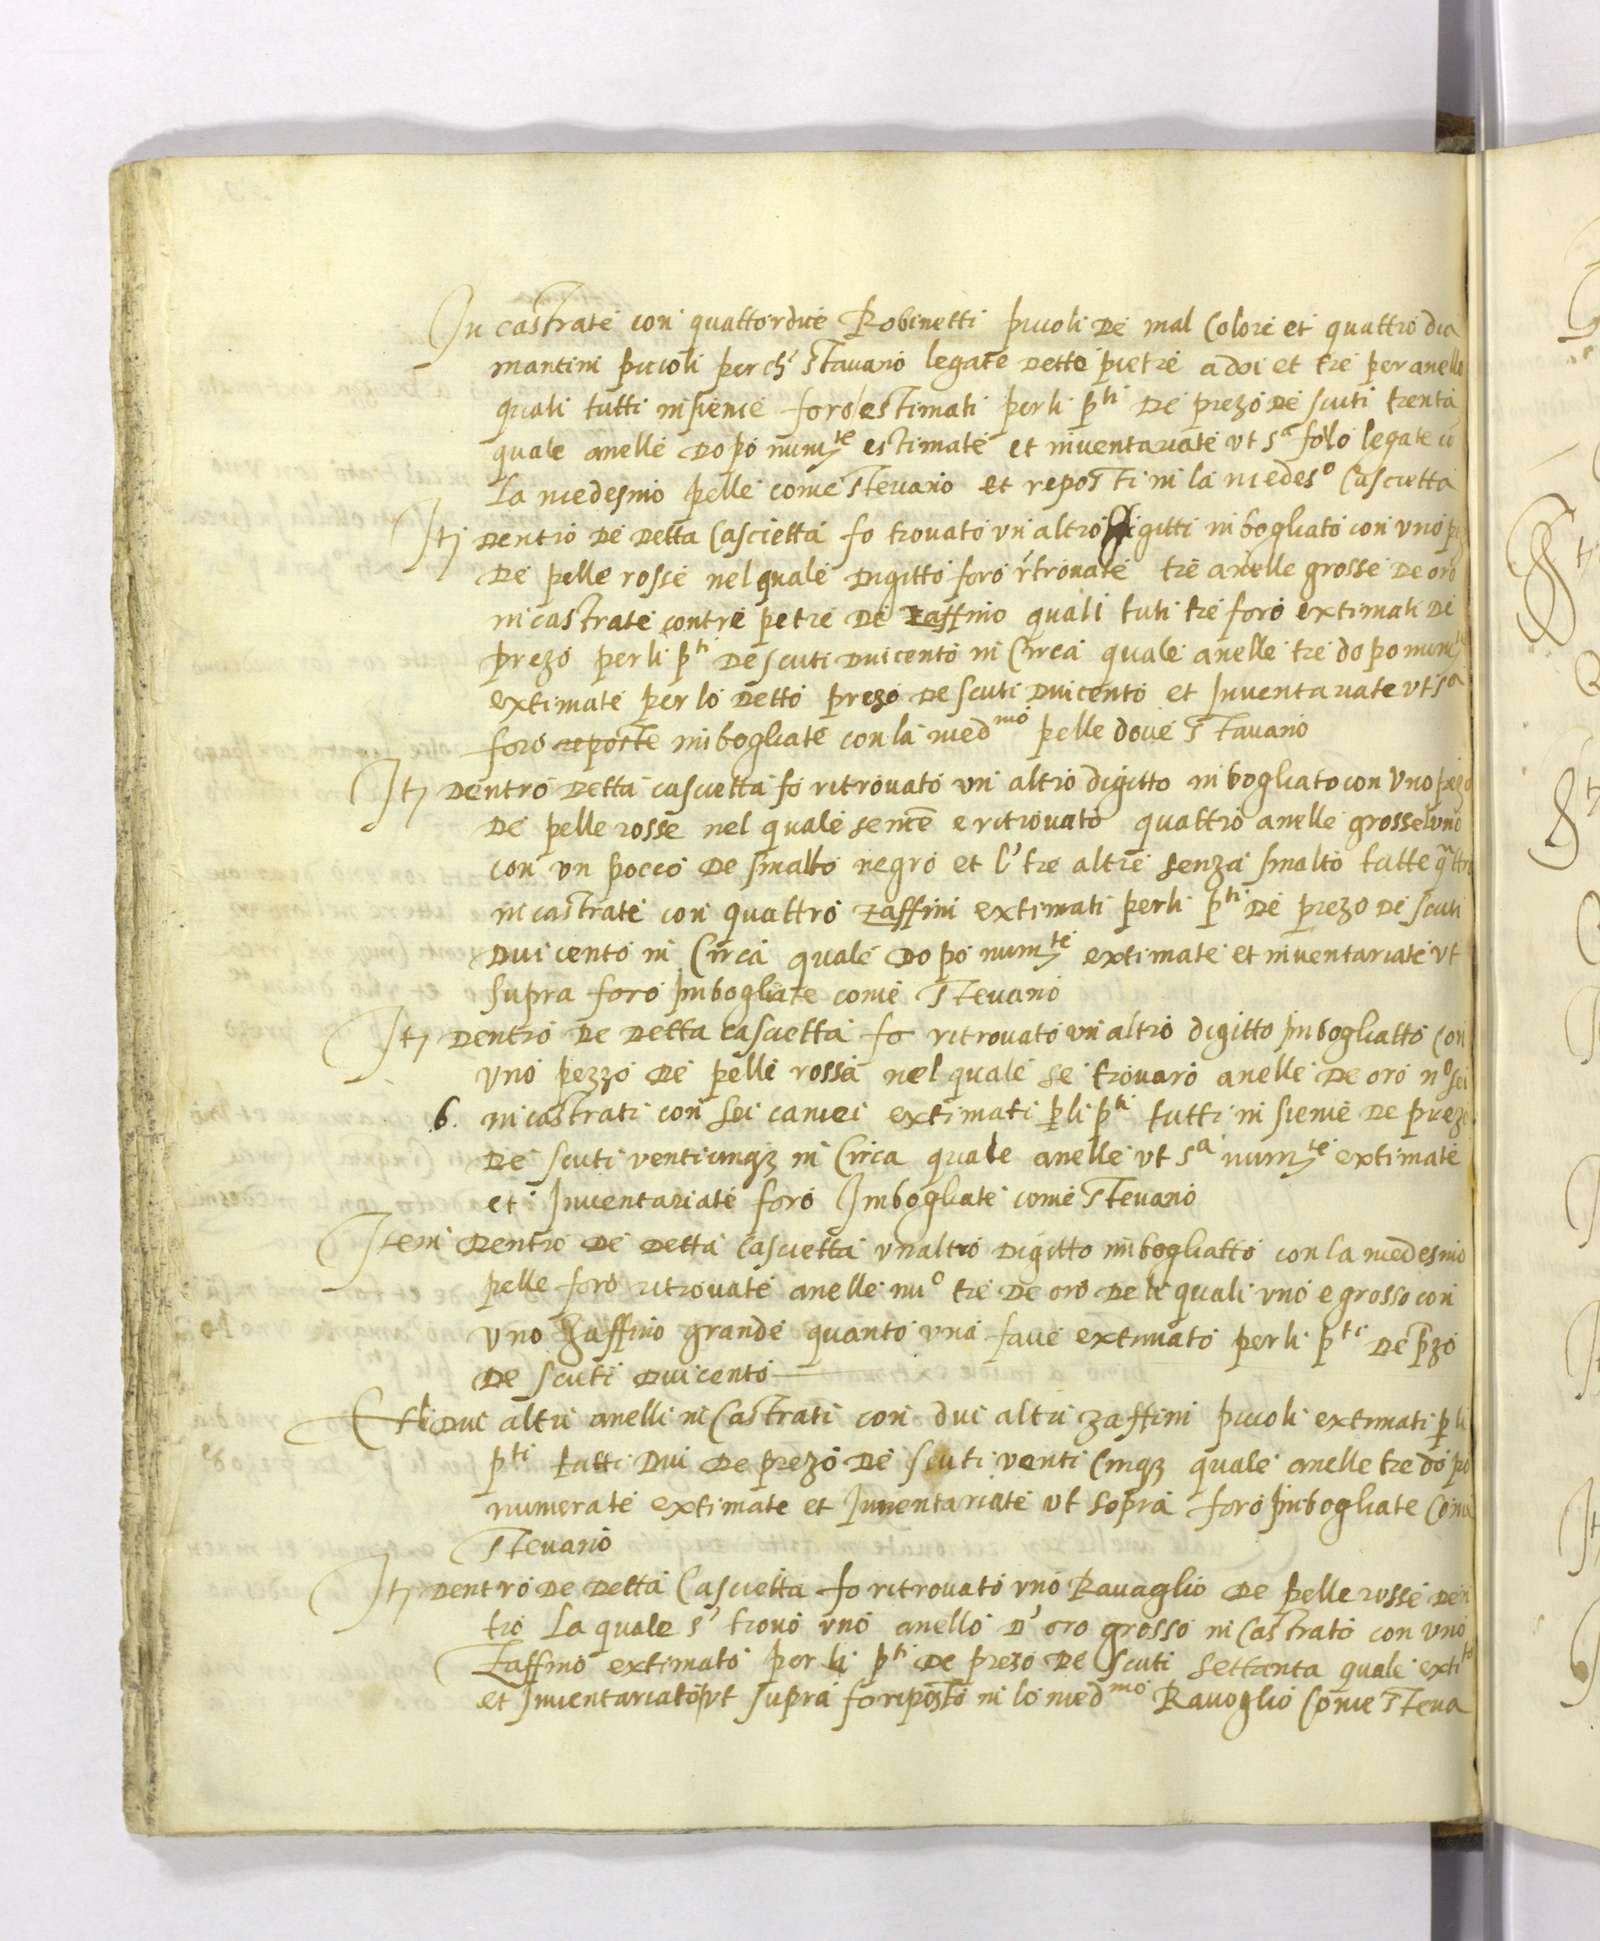 In castrate con quattordice Robinetti piccoli de mal colore et quattro dia
mantini piccoli perch' stavano legate dette pietre a doi et tre per anello
quali tutti insieme foro estimati per li p.ti de prezo de scuti trenta
quale anelle dopo num.te estimate et inventariate ut s.a folo legate in
la medesmo pelle come stevano et reposti in la medes.o Cascietta
It dentro de detta Cascietta fo trovato un altro digitti inbogliato con uno
de pelle rosse nel quale digitto foro rtrovate tre anelle grosse de oro
incastrate con tre petre de zaffino quali tuti tre foro extimati de
prezo per li p.ti de scuti duicento in Circa quale anelle tre dopo num.te
extimate per lo detto prezo de scuti duicento et Inventariate ut s.a
foro reposte inbogliate con la med.mo pelle dove stavano
It dentro detta cascietta fo ritrovato un altro digitto inbogliato con uno pezo
de pelle rosse nel quale sence e ritrovato quattro anelle grosse l'uno
con un pocco de smalto negro et l' tre altre senza smalto tutte qttro
incastrate con quattro zaffini extimati per li p.ti de prezo de scuti
duicento in Circa quale dopo num.te extimate et inventariate ut
supra foro Inbogliate come stevano
It dentro de detta cascietta fo ritrovato un altro digitto Inbogliatto con
uno pezzo de pelle rossa nel quale se trovaro anelle de oro n.o sei
6. incastrati con sei camei extimati p li p.ti tutti insieme de prezo
de scuti venticinq; in Circa quale anelle ut s.a num.te extimate
et Inventariate foro Imbogliate come stevano
Item dentro de detta cascietta un altro digitto inbogliatto con la medesmo
pelle foro ritrovate anelle nu.o tre de oro de li quali uno e grosso con
uno Zaffino grande quanto una fave extimato per li p.ti de przo
de scuti duicento
Et li dui altri anelli in Castrati con dui altri zaffini piccoli extimati p li
p.ti tutti dui de prezo de scuti venti cinq; quale anelle tre do po
numerate extimate et Inventariate ut sopra foro Inbogliate Come
stevano
It dentro de detta Cascietta fo ritrovato uno Ravaglio de pelle rosse den
tro la quale s' trovo uno anello d' oro grosso in Castrato con uno
Zaffino extimato per li p.ti de prezo de scuti settanta quale exti.to
et Inventariato ut supra fo riposto in lo med.mo Ravoglio Come steva